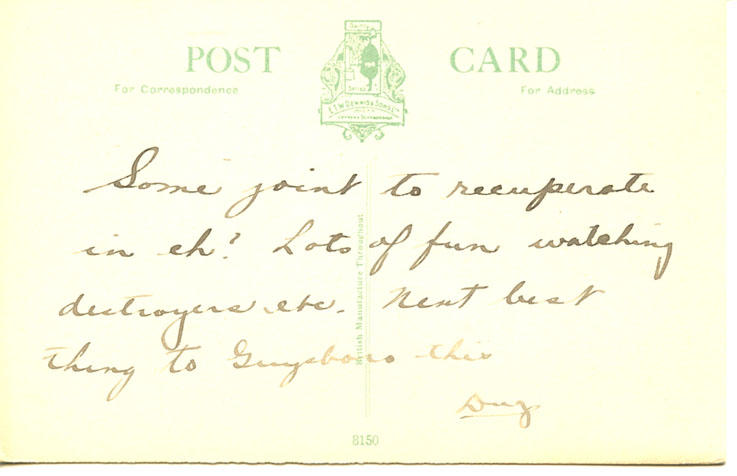 POST CARD
For Correspondence
For Address
E.T.W. DENNIS & SONS LTD
Some joint to recuperate
in eh? Lots of fun watching
destroyers etc. Next best
thing to Guysboro this
Dug
British Manufacture Throughout
8150